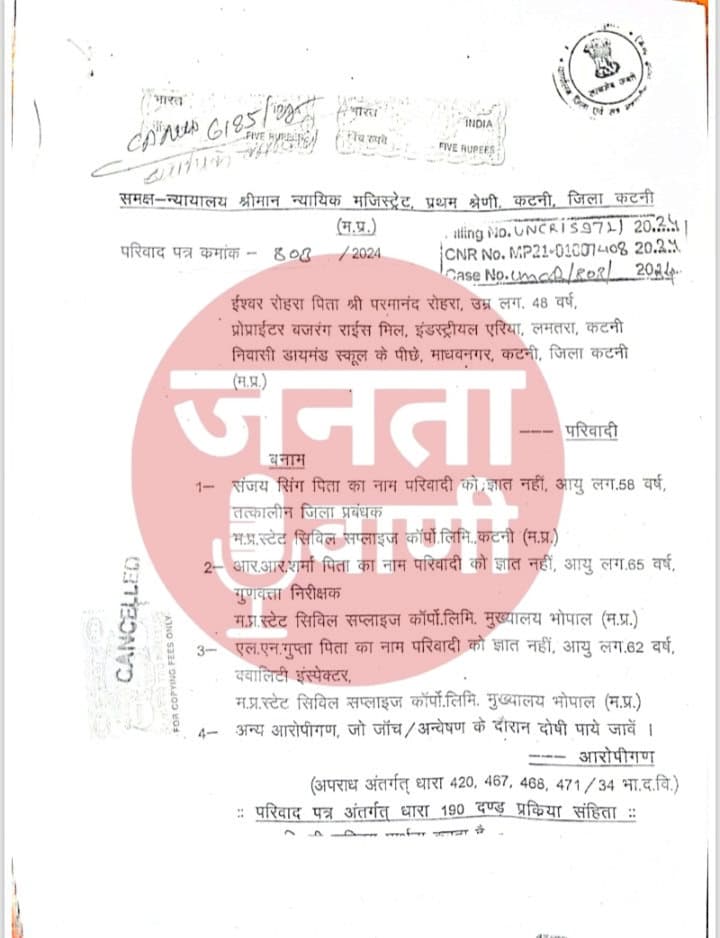 भारत
FIVE RUPEES
भारत
पाँच रुपये
INDIA
FIVE RUPEES
सत्यमेव जयते
6185/
समक्ष–न्यायालय श्रीमान न्यायिक मजिस्ट्रेट, प्रथम श्रेणी, कटनी, जिला कटनी
(म.प्र.)
परिवाद पत्र कमांक – 808 /2024
iling No. UNCR15971/2024
CNR No. MP21-01007408 2024
Case No. UMCR/808/ 2024
ईश्वर रोहरा पिता श्री परमानंद रोहरा, उम्र लग. 48 वर्ष,
प्रोप्राईटर बजरंग राईस मिल, इंडस्ट्रीयल एरिया, लमतरा, कटनी
निवासी डायमंड स्कूल के पीछे, माधवनगर, कटनी, जिला कटनी
(म.प्र.)
जनता
वाणी
---- परिवादी
बनाम
1– संजय सिंग पिता का नाम परिवादी को ज्ञात नहीं, आयु लग.58 वर्ष,
तत्कालीन जिला प्रबंधक
म.प्र.स्टेट सिविल सप्लाइज कॉर्पो.लिमि.,कटनी (म.प्र.)
2– आर.आर.शर्मा पिता का नाम परिवादी को ज्ञात नहीं, आयु लग.65 वर्ष,
गुणवत्ता निरीक्षक
म.प्र.स्टेट सिविल सप्लाइज कॉर्पो.लिमि. मुख्यालय भोपाल (म.प्र.)
3– एल.एन.गुप्ता पिता का नाम परिवादी को ज्ञात नहीं, आयु लग.62 वर्ष,
क्वालिटी इंस्पेक्टर,
म.प्र.स्टेट सिविल सप्लाइज कॉर्पो.लिमि. मुख्यालय भोपाल (म.प्र.)
4– अन्य आरोपीगण, जो जॉच/अन्वेषण के दौरान दोषी पाये जावें ।
---- आरोपीगण
(अपराध अंतर्गत् धारा 420, 467, 468, 471/34 भा.द.वि.)
:: परिवाद पत्र अंतर्गत् धारा 190 दण्ड प्रकिया संहिता ::
CANCELLED
FOR COPYING FEES ONLY